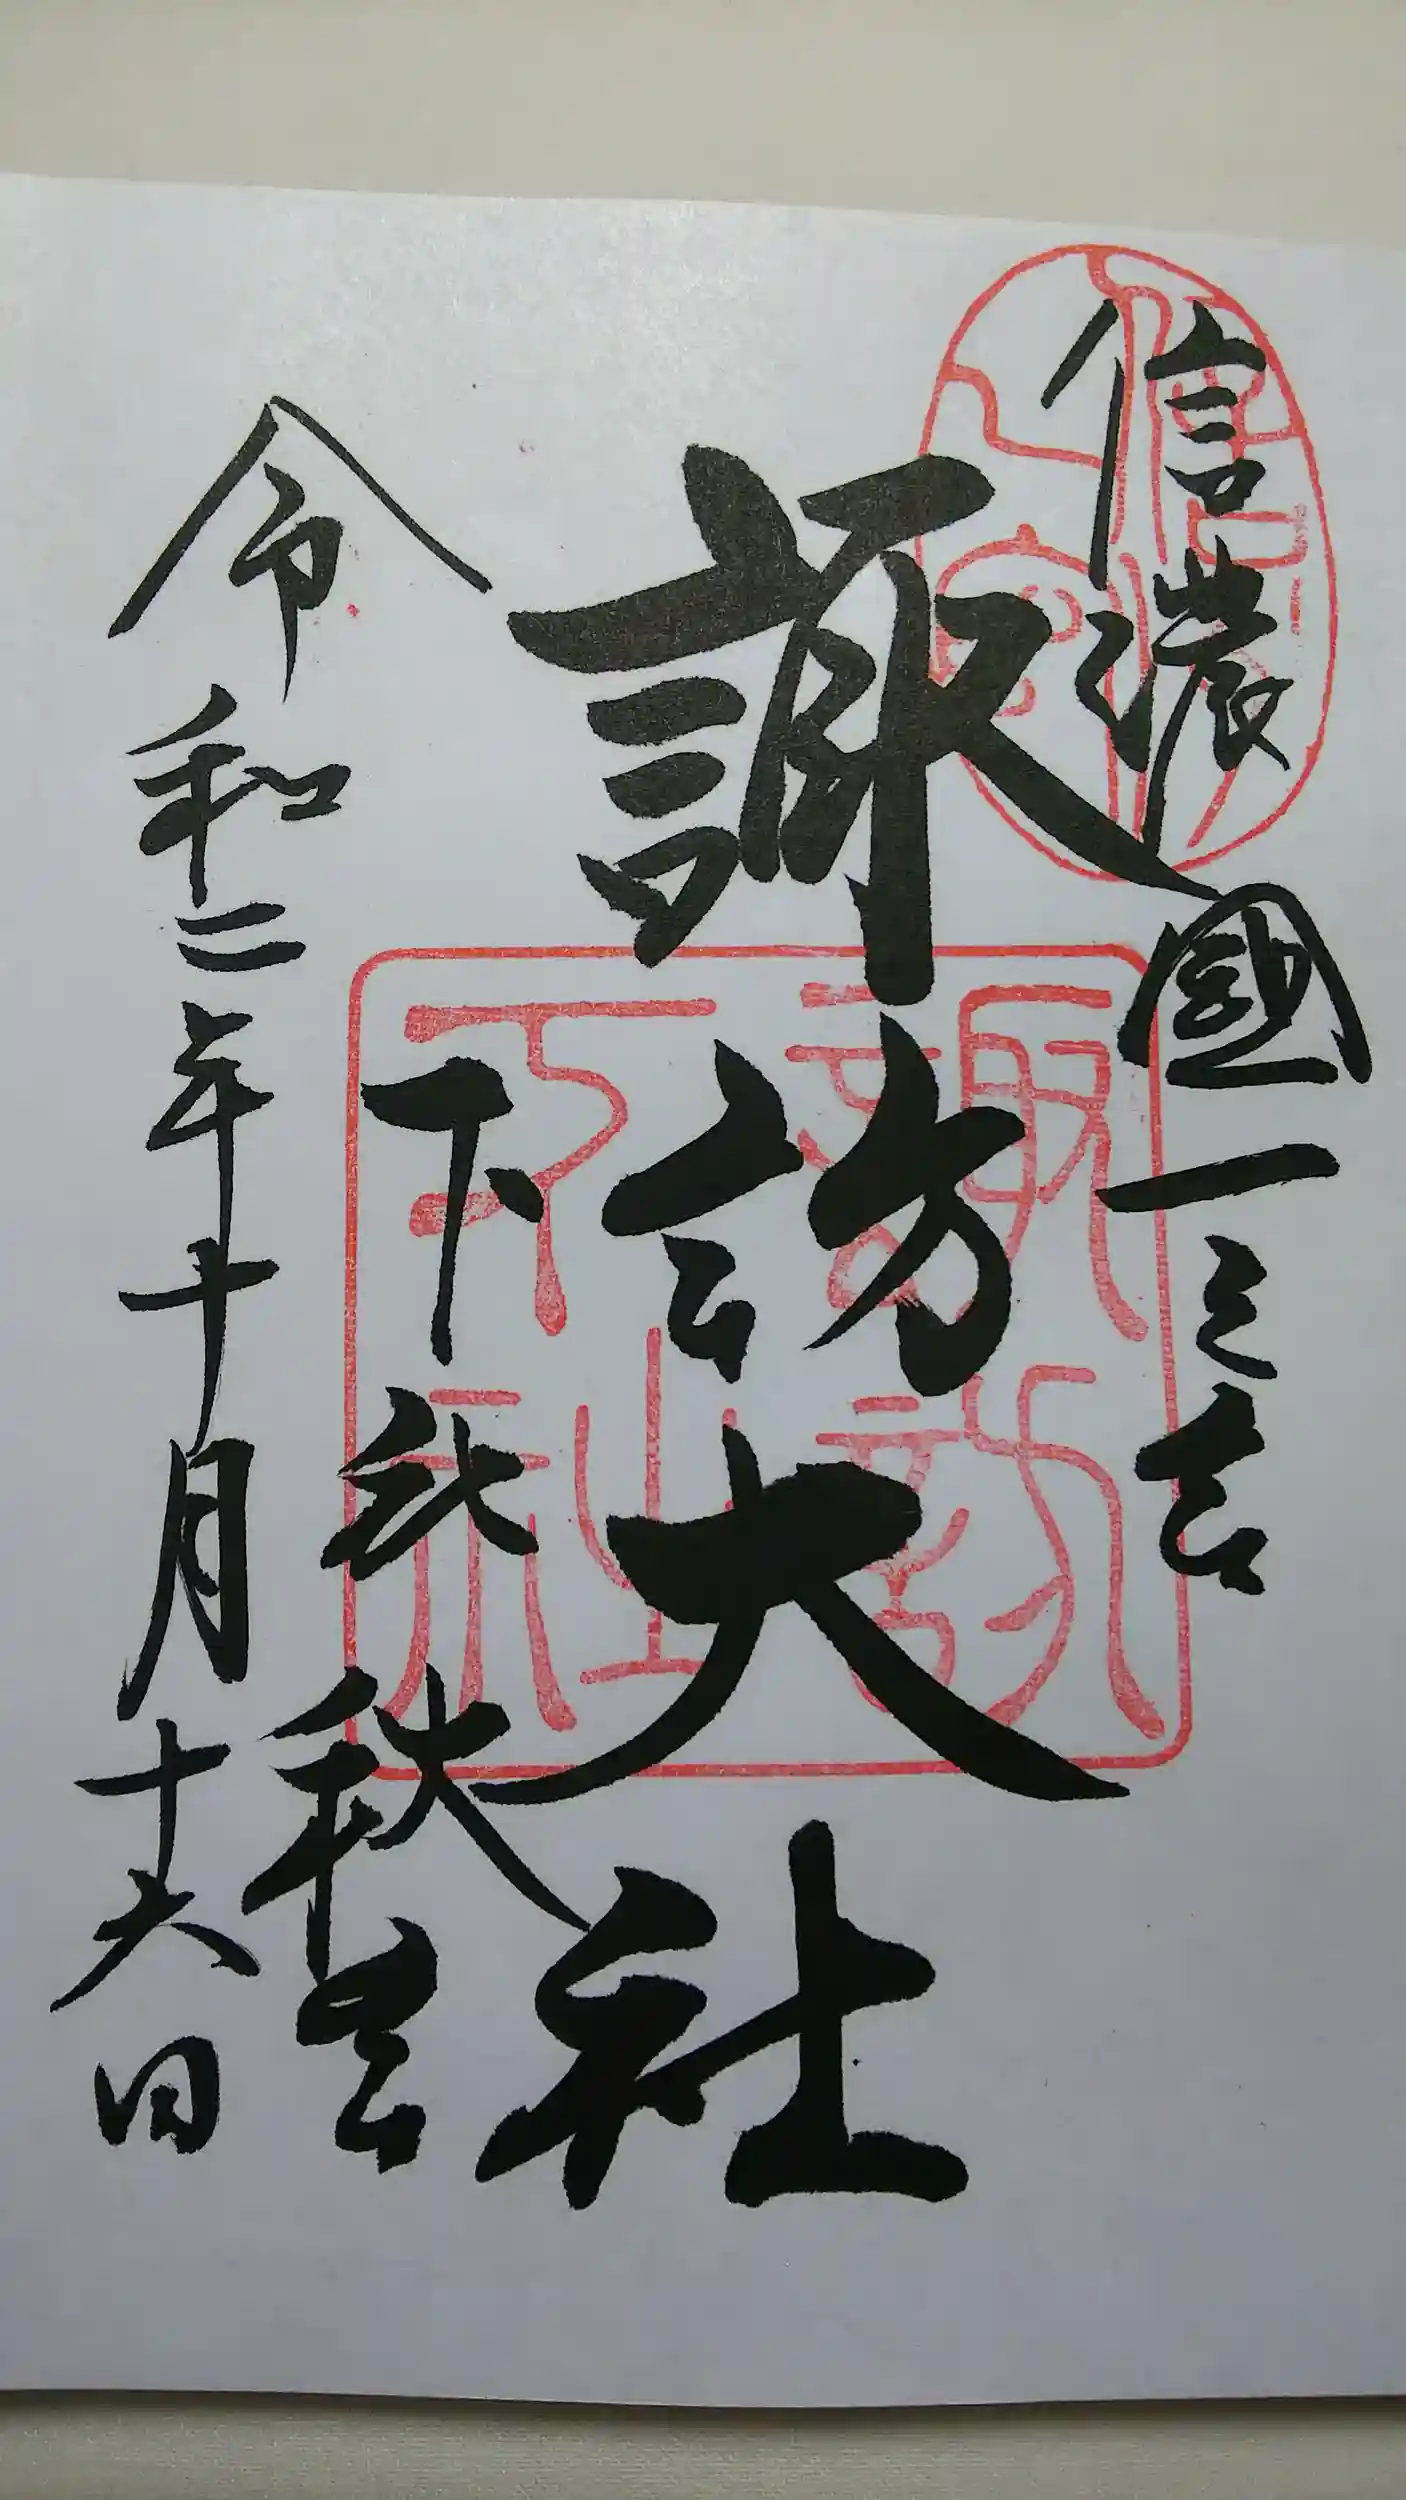 信濃國一之宮
諏訪大社
下社秋宮
令和二年十月十六日
諏訪下社